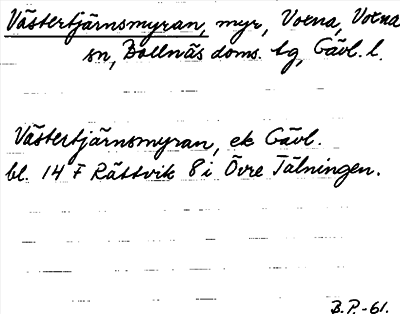 Västertjärnsmyran, myr, Voxna, Voxna
sn, Bollnäs doms. tg, Gävl. l.
Västertjärnsmyran, ek Gävl.
bl. 14 F Rättvik 8 i Övre Tälningen.
B.P.-61.